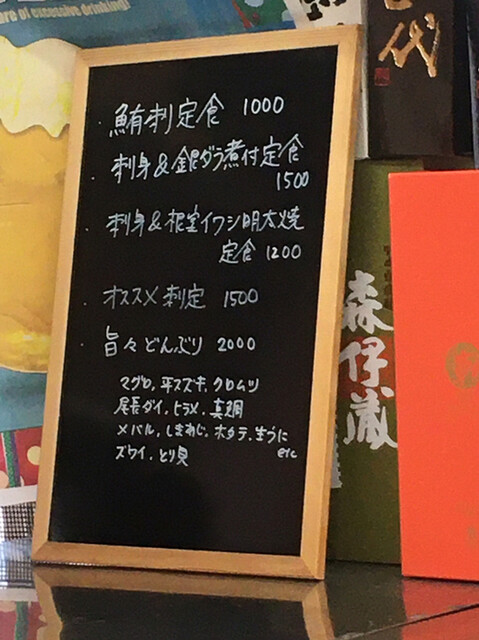 are of excessive drinking!
代
・鮪刺定食 1000
・刺身&銀ダラ煮付定食
1500
・刺身&根室イワシ明太焼
定食 1200
・オススメ刺定 1500
・旨々どんぶり 2000
マグロ、平スズキ、クロムツ
尾長ダイ、ヒラメ、真鯛
メバル、しまあじ、ホタテ、生うに
ズワイ、とり貝 etc
森伊蔵